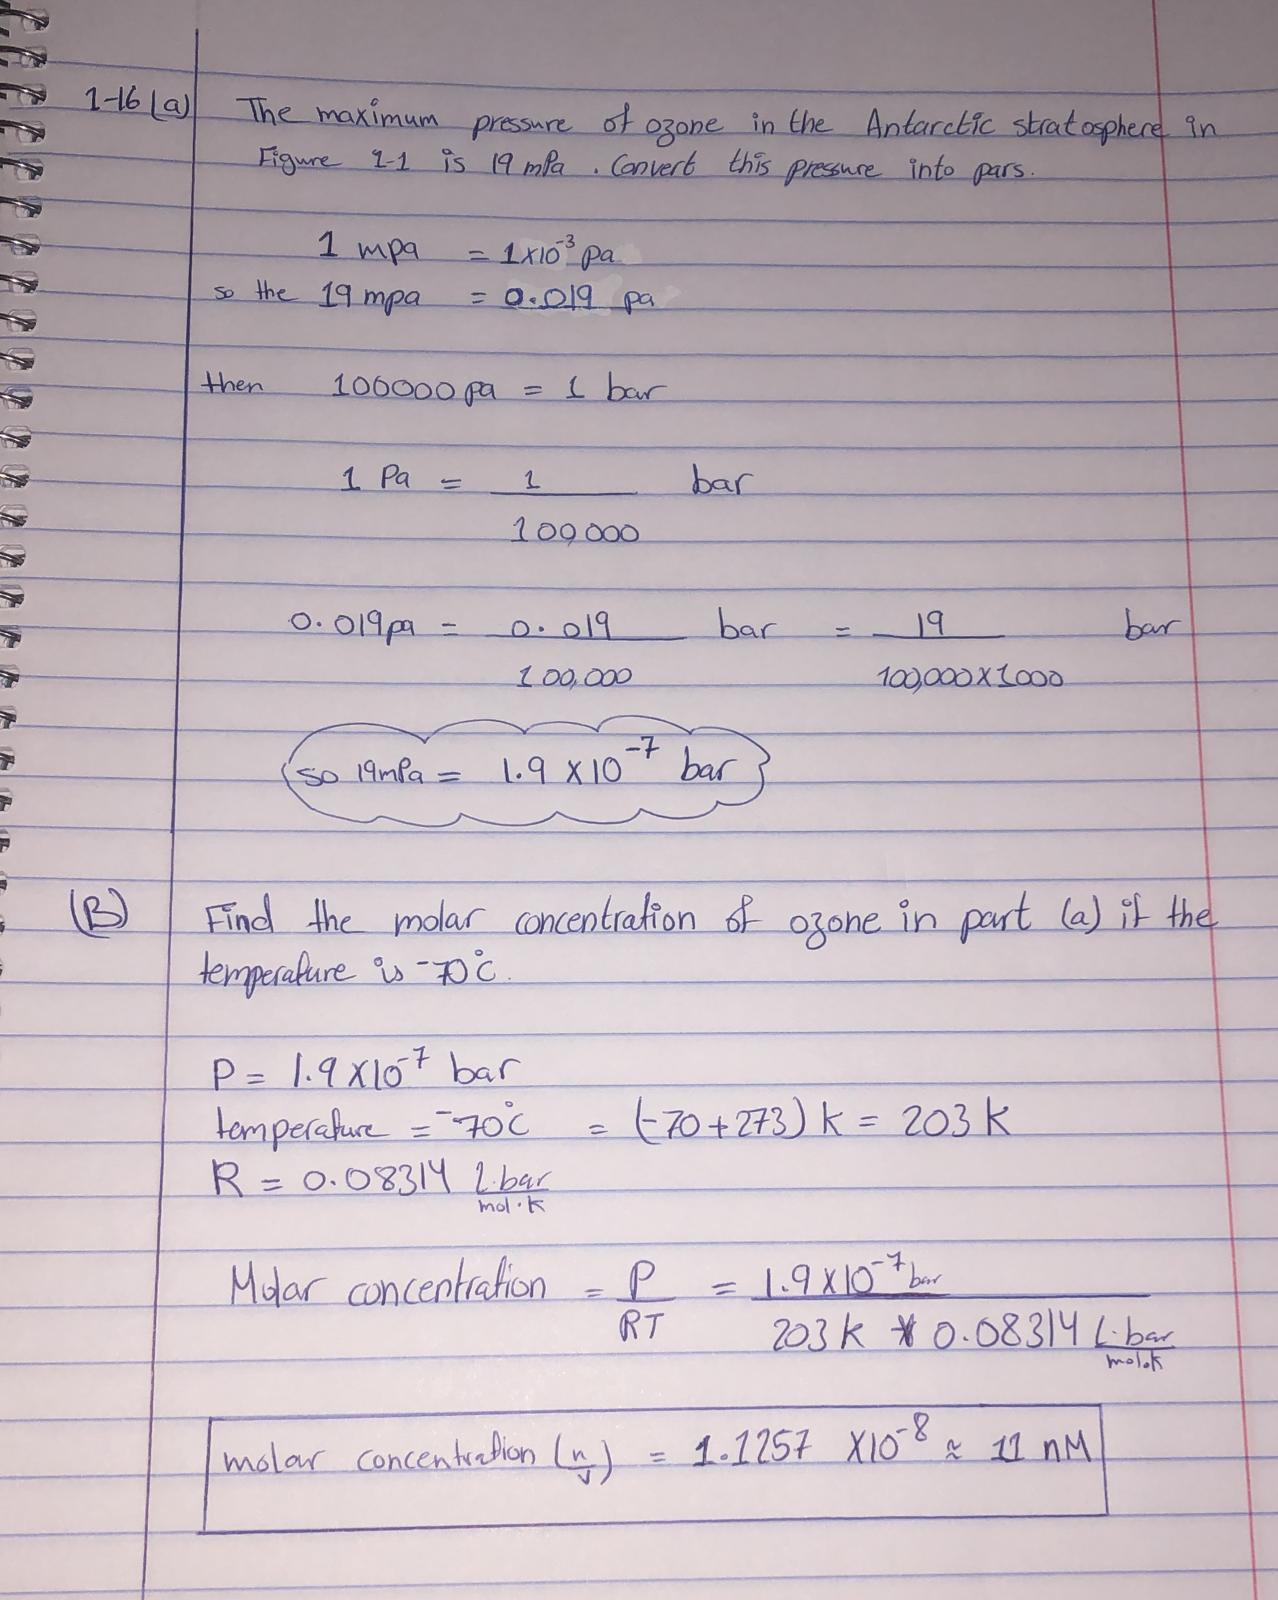 1-16 (a) The maximum pressure of ozone in the Antarctic stratosphere in
Figure 1-1 is 19 mPa. Convert this pressure into pars.
1 mpa = 1x10⁻³ pa
so the 19 mpa = 0.019 pa
then 100000 pa = 1 bar
1 Pa = 1/100000 bar
0.019 pa = 0.019/100,000 bar = 19/100,000 x 1000 bar
so 19mPa = 1.9 x 10⁻⁷ bar
(B) Find the molar concentration of ozone in part (a) if the
temperature is -70°c.
P = 1.9 x 10⁻⁷ bar
temperature = -70°c = (-70+273) k = 203 k
R = 0.08314 L.bar/mol.k
Molar concentration = P/RT = 1.9 x 10⁻⁷ bar/203 k * 0.08314 L.bar/mol.k
molar concentration (n/v) = 1.1257 x10⁻⁸ ≈ 11 nM